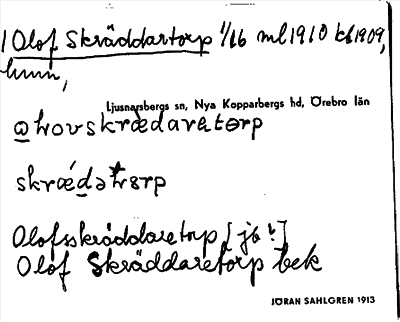 1 Olof Skräddartorp 1/16 ml 1910 kl 1909,
hmn,
Ljusnarsbergs sn, Nya Kopparbergs hd, Örebro län
skrǽdətɷrp
Olofsskräddaretorp [jb?]
Olof Skräddaretorp bek
JÖRAN SAHLGREN 1913